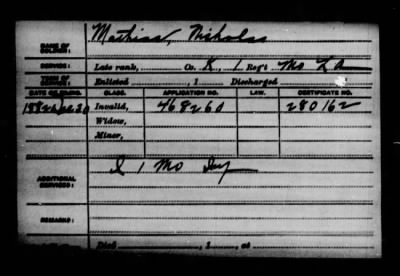 NAME OF SOLDIER: Mathias, Nicholas
SERVICE: Late rank, Co. K, 1 Reg't Mo L A
TERM OF SERVICE: Enlisted , 1 Discharged
DATE OF FILING. CLASS. APPLICATION NO. LAW. CERTIFICATE NO.
1882 30 Invalid, 468260 280162
Widow,
Minor,
ADDITIONAL SERVICES: I 1 Mo Inf
REMARKS:
Died , 1 , at